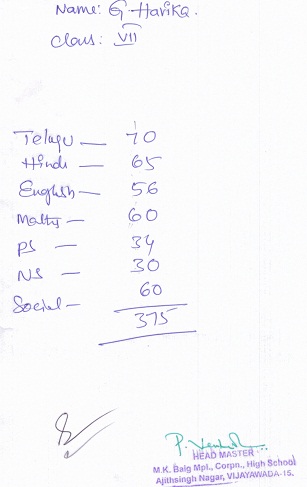 Name: G Harika.
Class: VII
Telugu — 70
Hindi — 65
English — 56
Maths — 60
PS — 34
NS — 30
Social — 60
375
HEAD MASTER
M.K. Baig Mpl., Corpn., High School
Ajithsingh Nagar, VIJAYAWADA-15.